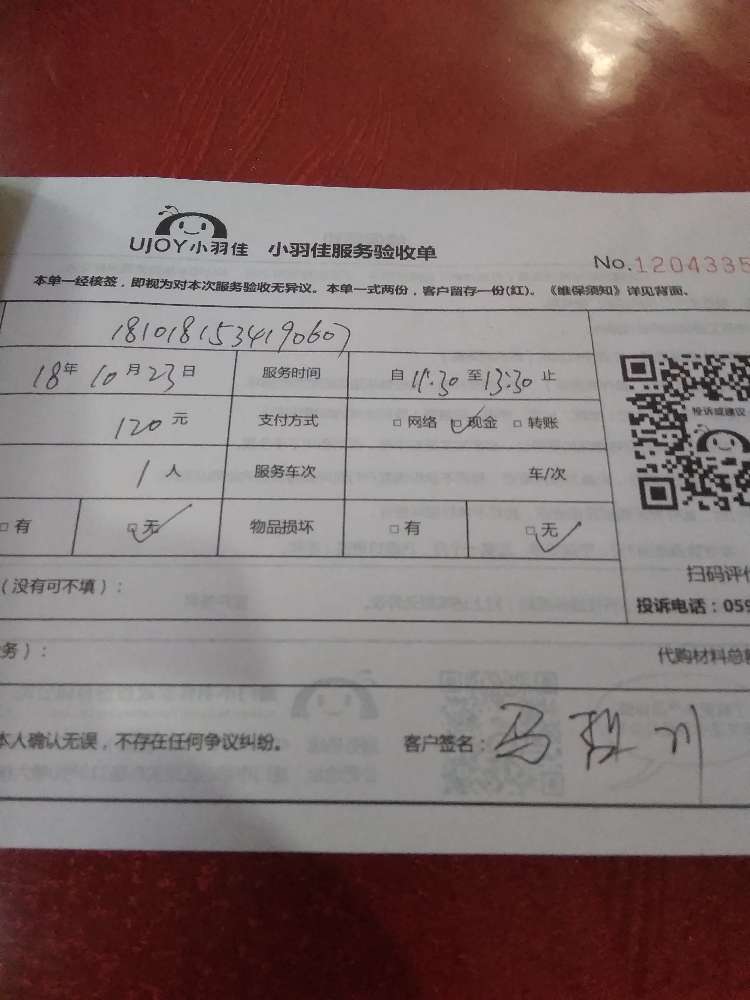 UJOY小羽佳 小羽佳服务验收单
No.1204335
本单一经核签，即视为对本次服务验收无异议。本单一式两份，客户留存一份(红)。《维保须知》详见背面。
1810181534190607
18年10月23日 服务时间 自 11:30 至 13:30 止
120元 支付方式 □网络 □现金 □转账
投诉或建议
1人 服务车次 车/次
□有 □无 物品损坏 □有 □无
扫码评
（没有可不填）：
投诉电话：059
务）：
代购材料总
本人确认无误，不存在任何争议纠纷。 客户签名：马 川